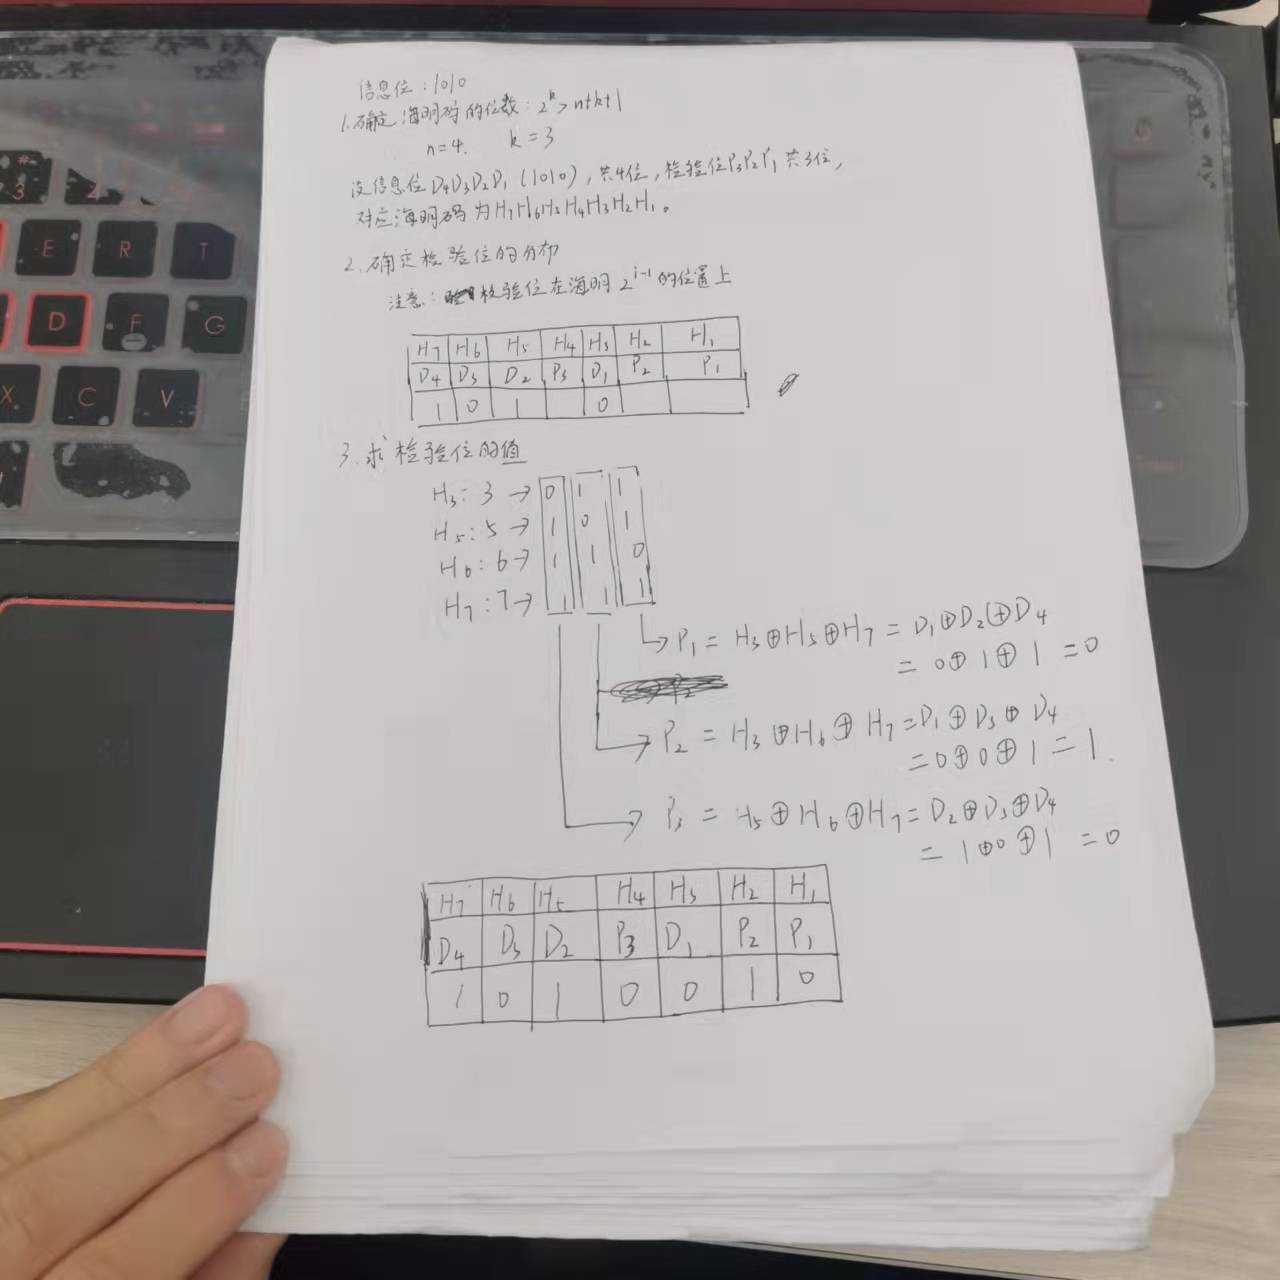 信息位:1010
1.确定海明码的位数:2^k ≥ n+k+1
n=4. k=3
设信息位D₄D₃D₂D₁(1010),共4位,检验位P₃P₂P₁共3位,
对应海明码为H₇H₆H₅H₄H₃H₂H₁。
2.确定检验位的分布
注意:校验位在海明2^(i-1)的位置上
H₇ H₆ H₅ H₄ H₃ H₂ H₁
D₄ D₃ D₂ P₃ D₁ P₂ P₁
1 0 1 0
3.求检验位的值
H₃:3→ 0 1 1
H₅:5→ 1 0 1
H₆:6→ 1 1 0
H₇:7→ 1 1 1
→P₁=H₃⊕H₅⊕H₇=D₁⊕D₂⊕D₄
=0⊕1⊕1=0
→P₂=H₃⊕H₆⊕H₇=D₁⊕D₃⊕D₄
=0⊕0⊕1=1.
→P₃=H₅⊕H₆⊕H₇=D₂⊕D₃⊕D₄
=1⊕0⊕1=0
H₇ H₆ H₅ H₄ H₃ H₂ H₁
D₄ D₃ D₂ P₃ D₁ P₂ P₁
1 0 1 0 0 1 0
3
E R T
D F G
X C V